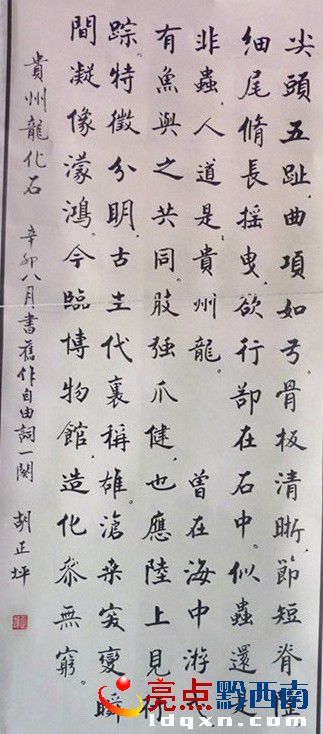 尖頭五趾，曲項如弓。骨板清晰，節短脊
細尾脩長，搖曳，欲行郤在石中。似蟲還
非蟲，人道是，貴州龍。 曾在海中游
有魚與之共同。肢強爪健，也應陸上見
踪。特徵分明，古生代裏稱雄。滄桑突變，瞬
間凝像濛鴻。今臨博物館，造化參無窮。
貴州龍化石 辛卯八月書舊作自由詞一闋 胡正坪
亮点黔西南
ldqxn.com